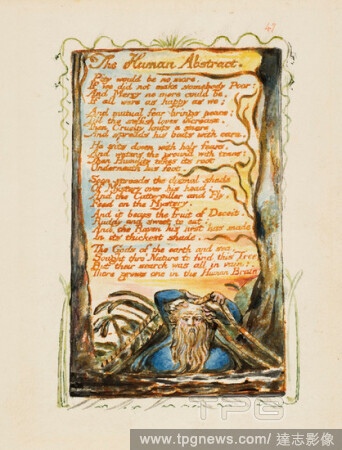 47
The Human Abstract.
Pity would be no more,
If we did not make somebody Poor:
And Mercy no more could be,
If all were as happy as we:
And mutual fear brings peace:
Till the selfish loves increase.
Then Cruelty knits a snare,
And spreads his baits with care.
He sits down with holy fears,
And waters the ground with tears:
Then Humility takes its root
Underneath his foot.
Soon spreads the dismal shade
Of Mystery over his head:
And the Catterpiller and Fly,
Feed on the Mystery.
And it bears the fruit of Deceit,
Ruddy and sweet to eat:
And the Raven his nest has made
In its thickest shade.
The Gods of the earth and sea,
Sought thro' Nature to find this Tree
But their search was all in vain:
There grows one in the Human Brain
TPG
www.tpgnews.com/達志影像